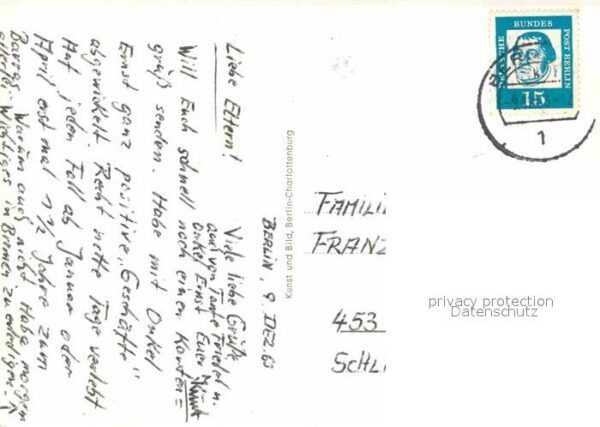 Berlin, 9. Dez. 63
Liebe Eltern!
Will Euch schnell noch einen Karten=
gruß senden. Habe mit Onkel
Ernst ganz positive „Geschäfte"
abgewickelt. Recht nette Tage verlebt
Auf jeden Fall ab Januar oder
April erst mal 1 1/2 Jahre zum
Warum auch nicht. Habe morgen
Wichtiges in Bremen zu erledigen.
Viele liebe Grüße
auch von Tante Friedel u.
Onkel Ernst Euer
Kunst und Bild, Berlin-Charlottenburg
DEUTSCHE BUNDES POST BERLIN
15
BERLIN
1
FAMILI
FRANZ
453
SCHL
privacy protection
Datenschutz